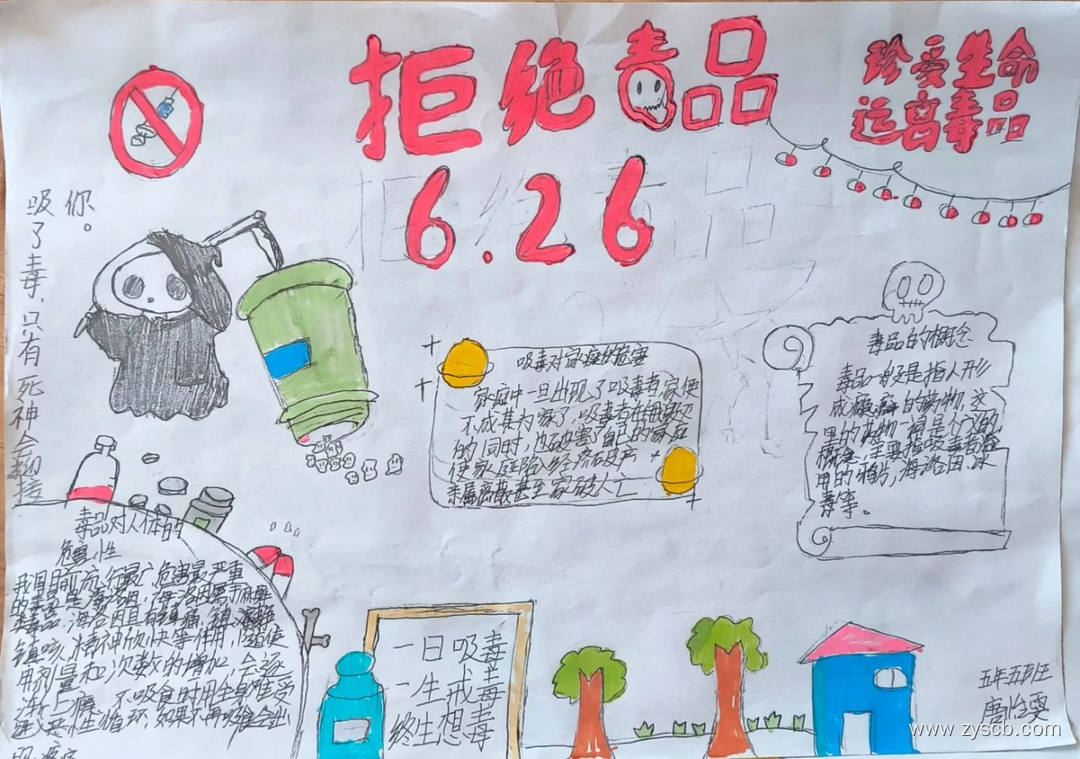 拒绝毒品
6.26
珍爱生命
远离毒品
吸了毒，只有死神会迎接
你。
吸毒对家庭的危害
家庭中一旦出现了吸毒者，家便
不成其为家了，吸毒者在自我毁灭
的同时，也破害了自己的家庭
使家庭陷入经济破产
亲属离散甚至家破人亡
毒品的概念
毒品一般是指人形
成瘾癖的药物，这
里的药物一词是个广义的
概念，主要指吸毒者滥
用的鸦片，海洛因，冰
毒等。
毒品对人体的
危害性
我国目前流行最广危害最严重
的毒品是海洛因，海洛因属于
毒品，海洛因具有镇痛，镇
镇咳，精神欣快等作用，
用剂量和次数的增加，会逐
一日吸毒
一生戒毒
终生想毒
五年五班
唐怡雯
www.zyscb.com